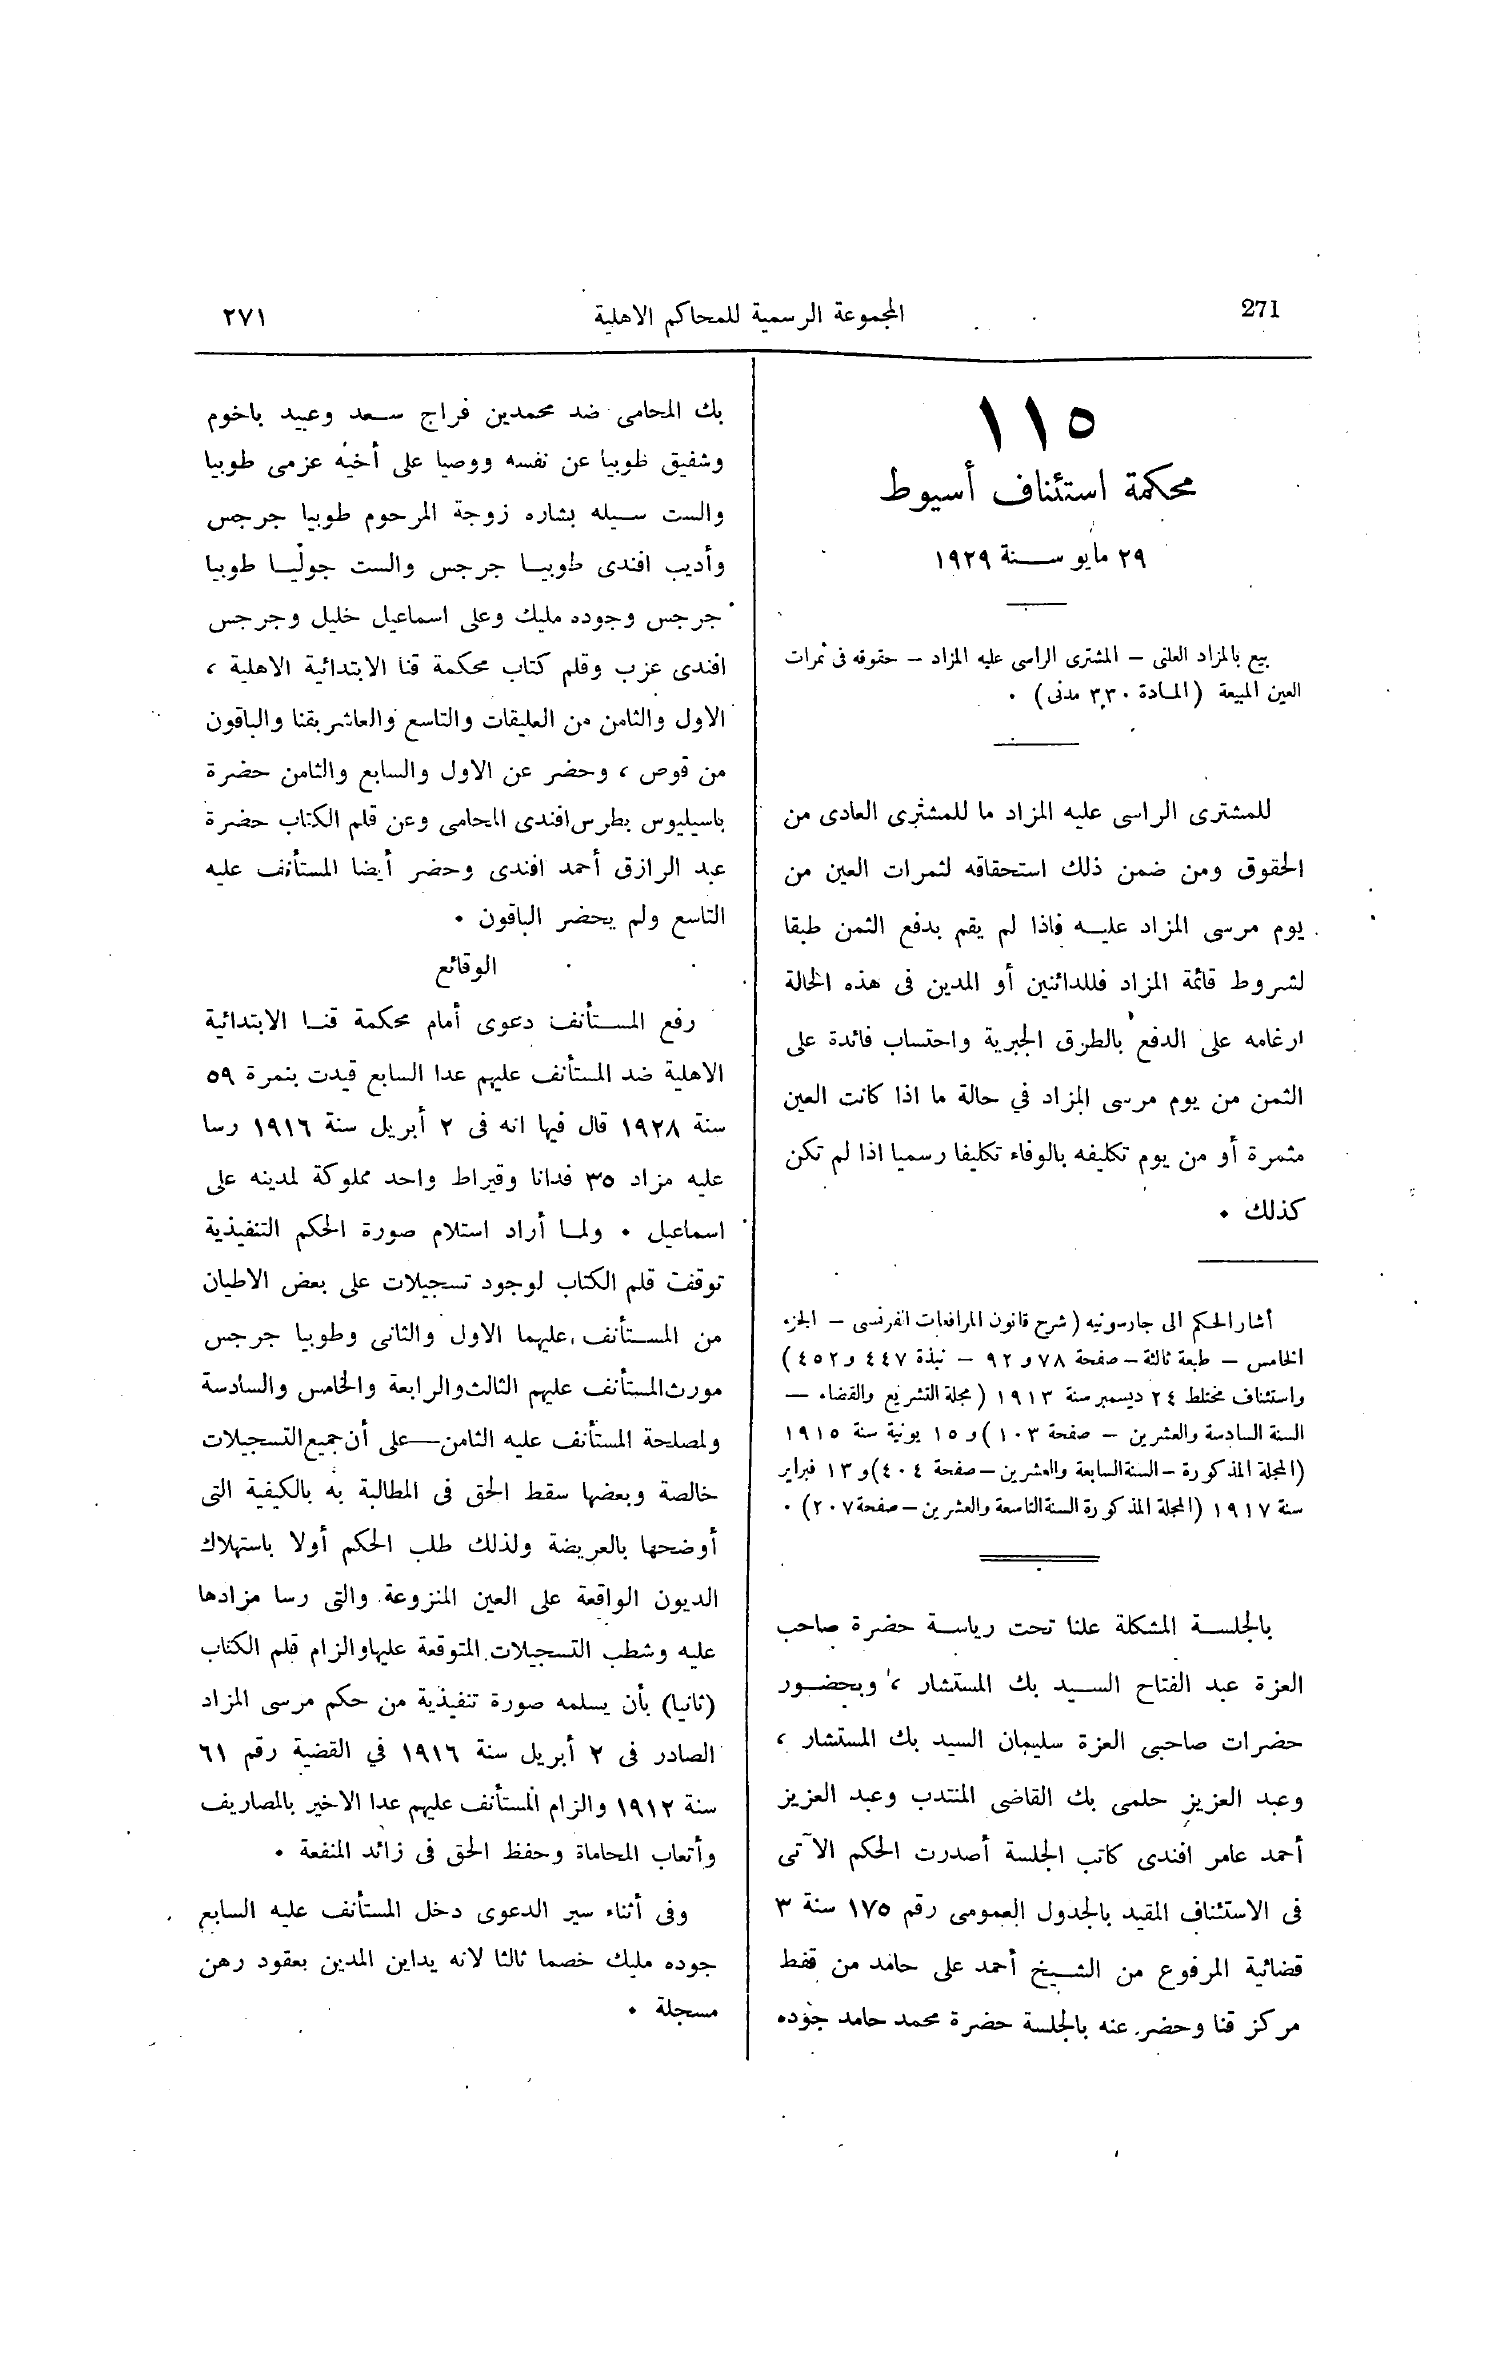 271
المجموعة الرسمية للمحاكم الاهلية
٢٧١
١١٥
محكمة استئناف أسيوط
٢٩ مايو سنة ١٩٢٩
بيع بالمزاد العلنى – المشترى الراسى عليه المزاد – حقوقه فى ثمرات
العين المبيعة (المادة ٣٣٠ مدنى) ٠
للمشترى الراسى عليه المزاد ما للمشترى العادى من
الحقوق ومن ضمن ذلك استحقاقه لثمرات العين من
يوم مرسى المزاد عليه فاذا لم يقم بدفع الثمن طبقا
لشروط قائمة المزاد فللدائنين أو المدين فى هذه الحالة
ارغامه على الدفع بالطرق الجبرية واحتساب فائدة على
الثمن من يوم مرسى المزاد في حالة ما اذا كانت العين
مثمرة أو من يوم تكليفه بالوفاء تكليفا رسميا اذا لم تكن
كذلك ٠
أشار الحكم الى جارسونيه (شرح قانون المرافعات الفرنسى – الجزء
الخامس – طبعة ثالثة – صفحة ٧٨ و ٩٢ – نبذة ٤٤٧ و ٤٥٢)
واستئناف مختلط ٢٤ ديسمبر سنة ١٩١٣ (مجلة التشريع والقضاء –
السنة السادسة والعشرين – صفحة ١٠٣) و ١٥ يونية سنة ١٩١٥
(المجلة المذكورة – السنة السابعة والعشرين – صفحة ٤٠٤) و ١٣ فبراير
سنة ١٩١٧ (المجلة المذكورة السنة التاسعة والعشرين – صفحة ٢٠٧) ٠
بالجلسة المشكلة علنا تحت رياسة حضرة صاحب
العزة عبد الفتاح السيد بك المستشار ، وبحضور
حضرات صاحبى العزة سليمان السيد بك المستشار ،
وعبد العزيز حلمى بك القاضى المنتدب وعبد العزيز
أحمد عامر افندى كاتب الجلسة أصدرت الحكم الآتى
فى الاستئناف المقيد بالجدول العمومى رقم ١٧٥ سنة ٣
قضائية المرفوع من الشيخ أحمد على حامد من قفط
مركز قنا وحضر عنه بالجلسة حضرة محمد حامد جوده
بك المحامى ضد محمدين فراج سعد وعبيد باخوم
وشفيق طوبيا عن نفسه ووصيا على أخيه عزمى طوبيا
والست سيله بشاره زوجة المرحوم طوبيا جرجس
وأديب افندى طوبيا جرجس والست جوليا طوبيا
جرجس وجوده مليك وعلى اسماعيل خليل وجرجس
افندى عزب وقلم كتاب محكمة قنا الابتدائية الاهلية ،
الاول والثامن من العليقات والتاسع والعاشر بقنا والباقون
من قوص ، وحضر عن الاول والسابع والثامن حضرة
باسيليوس بطرس افندى المحامى وعن قلم الكتاب حضرة
عبد الرازق أحمد افندى وحضر أيضا المستأنف عليه
التاسع ولم يحضر الباقون ٠
الوقائع
رفع المستأنف دعوى أمام محكمة قنا الابتدائية
الاهلية ضد المستأنف عليهم عدا السابع قيدت بنمرة ٥٩
سنة ١٩٢٨ قال فيها انه فى ٢ أبريل سنة ١٩١٦ رسا
عليه مزاد ٣٥ فدانا وقيراط واحد مملوكة لمدينه على
اسماعيل ٠ ولما أراد استلام صورة الحكم التنفيذية
توقفت قلم الكتاب لوجود تسجيلات على بعض الاطيان
من المستأنف عليهما الاول والثانى وطوبيا جرجس
مورث المستأنف عليهم الثالث والرابعة والخامس والسادسة
ولمصلحة المستأنف عليه الثامن — على أن جميع التسجيلات
خالصة وبعضها سقط الحق فى المطالبة به بالكيفية التى
أوضحها بالعريضة ولذلك طلب الحكم أولا باستهلاك
الديون الواقعة على العين المنزوعة والتى رسا مزادها
عليه وشطب التسجيلات المتوقعة عليها والزام قلم الكتاب
(ثانيا) بأن يسلمه صورة تنفيذية من حكم مرسى المزاد
الصادر فى ٢ أبريل سنة ١٩١٦ في القضية رقم ٦١
سنة ١٩١٢ والزام المستأنف عليهم عدا الاخير بالمصاريف
وأتعاب المحاماة وحفظ الحق فى زائد المنفعة ٠
وفى أثناء سير الدعوى دخل المستأنف عليه السابع
جوده مليك خصما ثالثا لانه يداين المدين بعقود رهن
مسجلة ٠